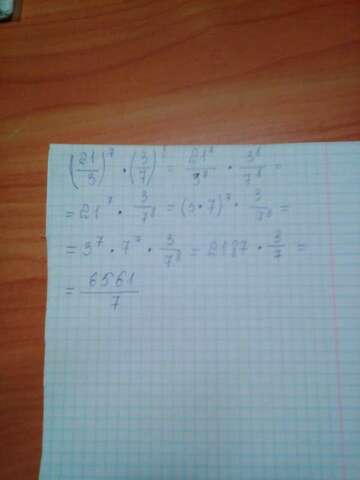 (21/3)^7 · (3/7)^8 = 21^8/3^8 · 3^8/7^8 =
= 21^7 · 3/7^8 = (3·7)^7 · 3/7^8 =
= 3^7 · 7^7 · 3/7^8 = 2187 · 3/7 =
= 6561/7